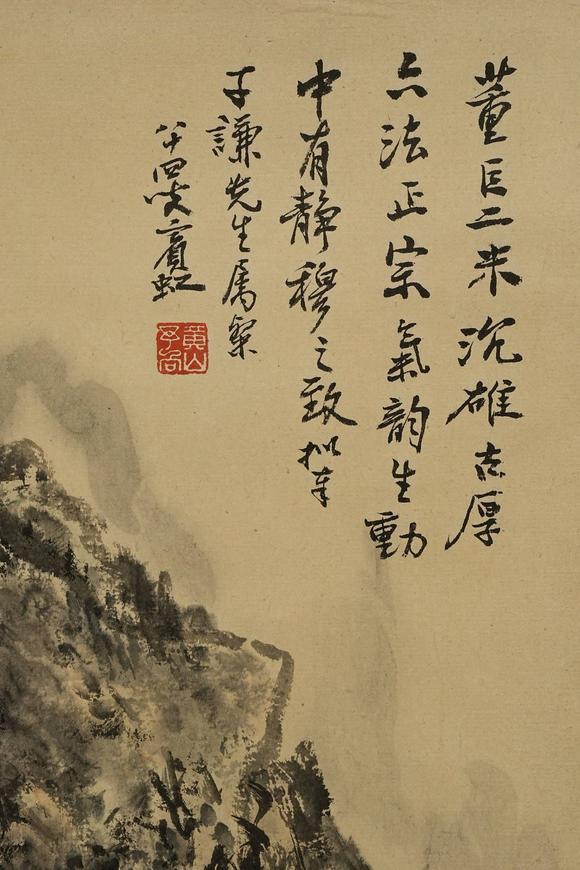 董巨二米沉雄古厚
六法正宗氣韵生動
中有静穆之致拟奉
子謙先生属粲
八十四叟賓虹
黄山予向